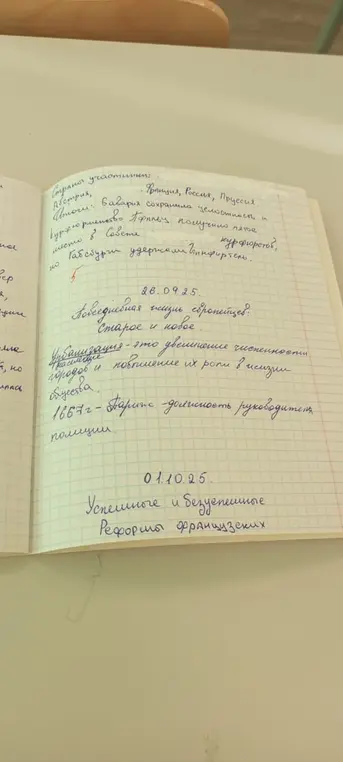 Страны участники:
Австрия, Франция, Россия, Пруссия
Итоги: Бавария сохранила целостность и
курфюршество Пфальц получило пятое
место в Совете курфюрстов,
но Габсбурги удержали
5
26.09.25.
Повседневная жизнь европейцев.
Старое и новое.
Урбанизация - это увеличение численности
городов и повышение их роли в жизни
общества.
1667г - Париж - должность руководителя
полиции.
01.10.25.
Успешные и безуспешные
Реформы французских